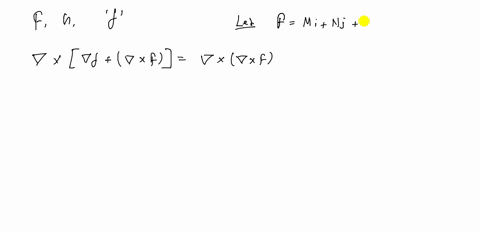 F, G, 'f'
Let F = Mi + Nj +
∇ × [∇f + (∇ × F)] = ∇ × (∇ × F)